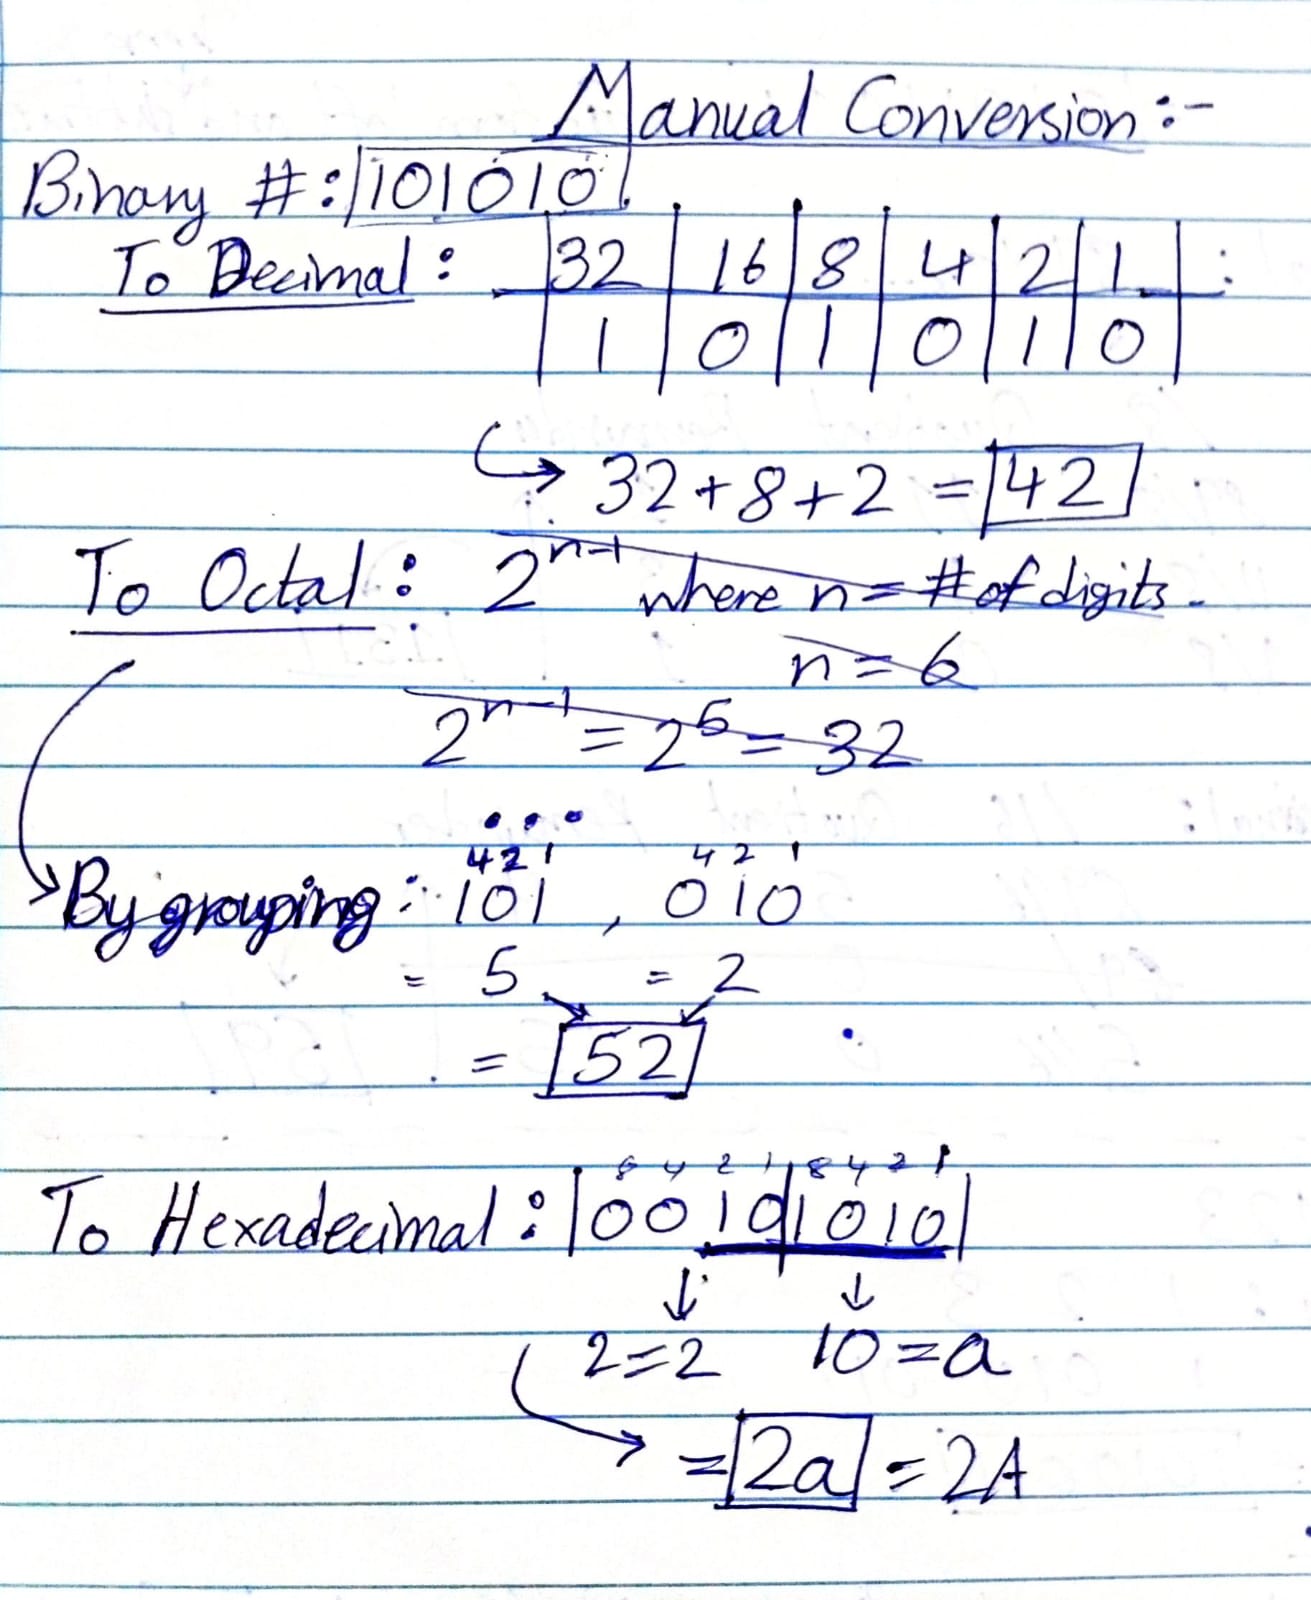 Manual Conversion:-
Binary #: 101010
To Decimal: 32 16 8 4 2 1 :
1 0 1 0 1 0
32+8+2 = 42
To Octal: 2^n-1 where n = # of digits.
n = 6
2^n-1 = 2^5 = 32
4 2 1 4 2 1
By grouping: 101 , 010
= 5 = 2
= 52
8 4 2 1 8 4 2 1
To Hexadecimal: 0010 1010
↓ ↓
2=2 10=a
= 2a = 2A